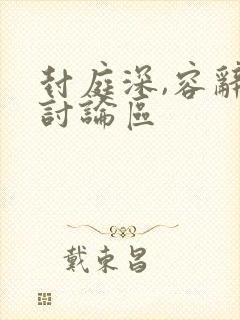 封庭深,容辭
討論區
戴東昌